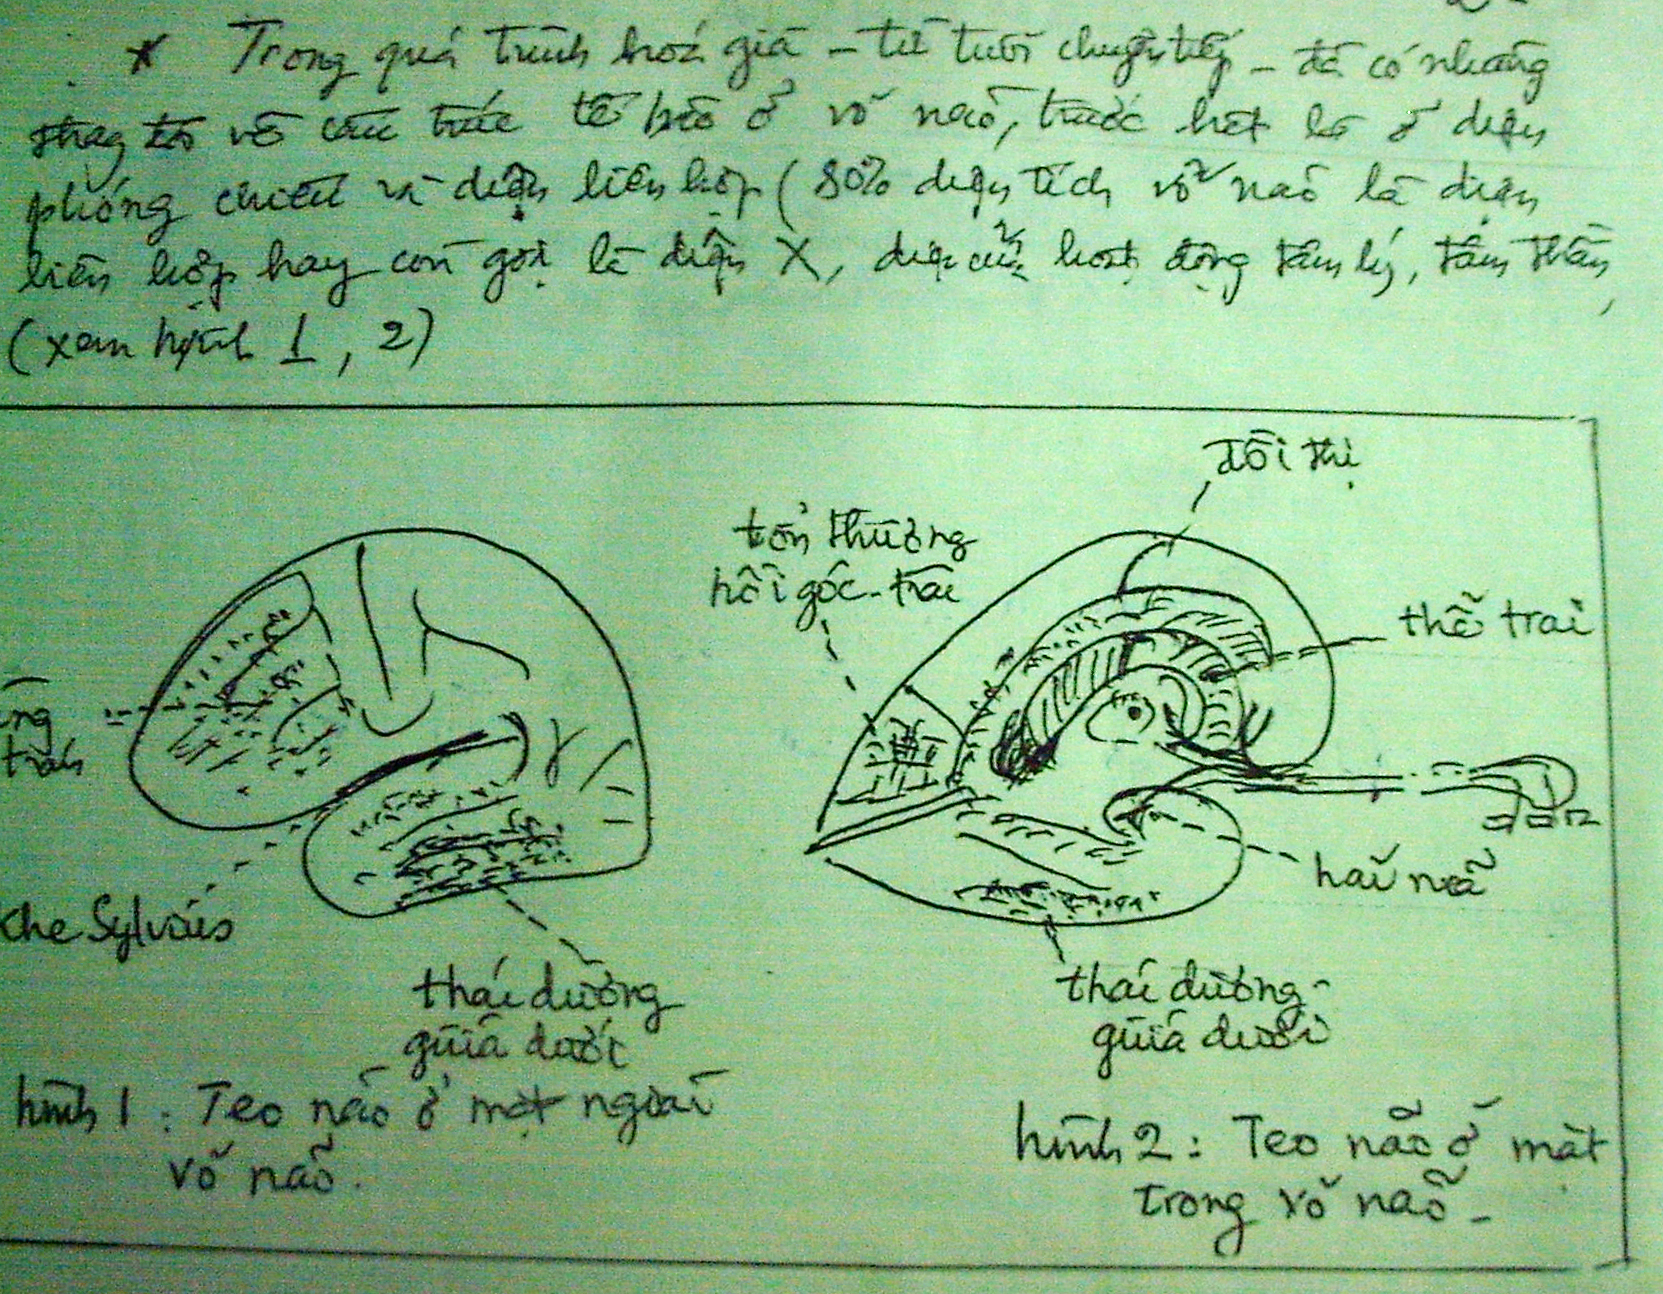 * Trong quá trình hoá già - từ tuổi chuyển tiếp - đã có những
thay đổi về cấu trúc tế bào ở vỏ não, trước hết là ở diện
phóng chiếu và diện liên hợp (80% diện tích vỏ não là diện
liên hợp hay còn gọi là diện X, diện của hoạt động tâm lý, tâm thần,
(xem hình 1, 2)
đồi thị
tổn thương
hồi góc-trán
thể trai
trán
hải mã
khe Sylvius
thái dương
giữa dưới
thái dương-
giữa dưới
hình 1: Teo não ở mặt ngoài
vỏ não.
hình 2: Teo não ở mặt
trong vỏ não-